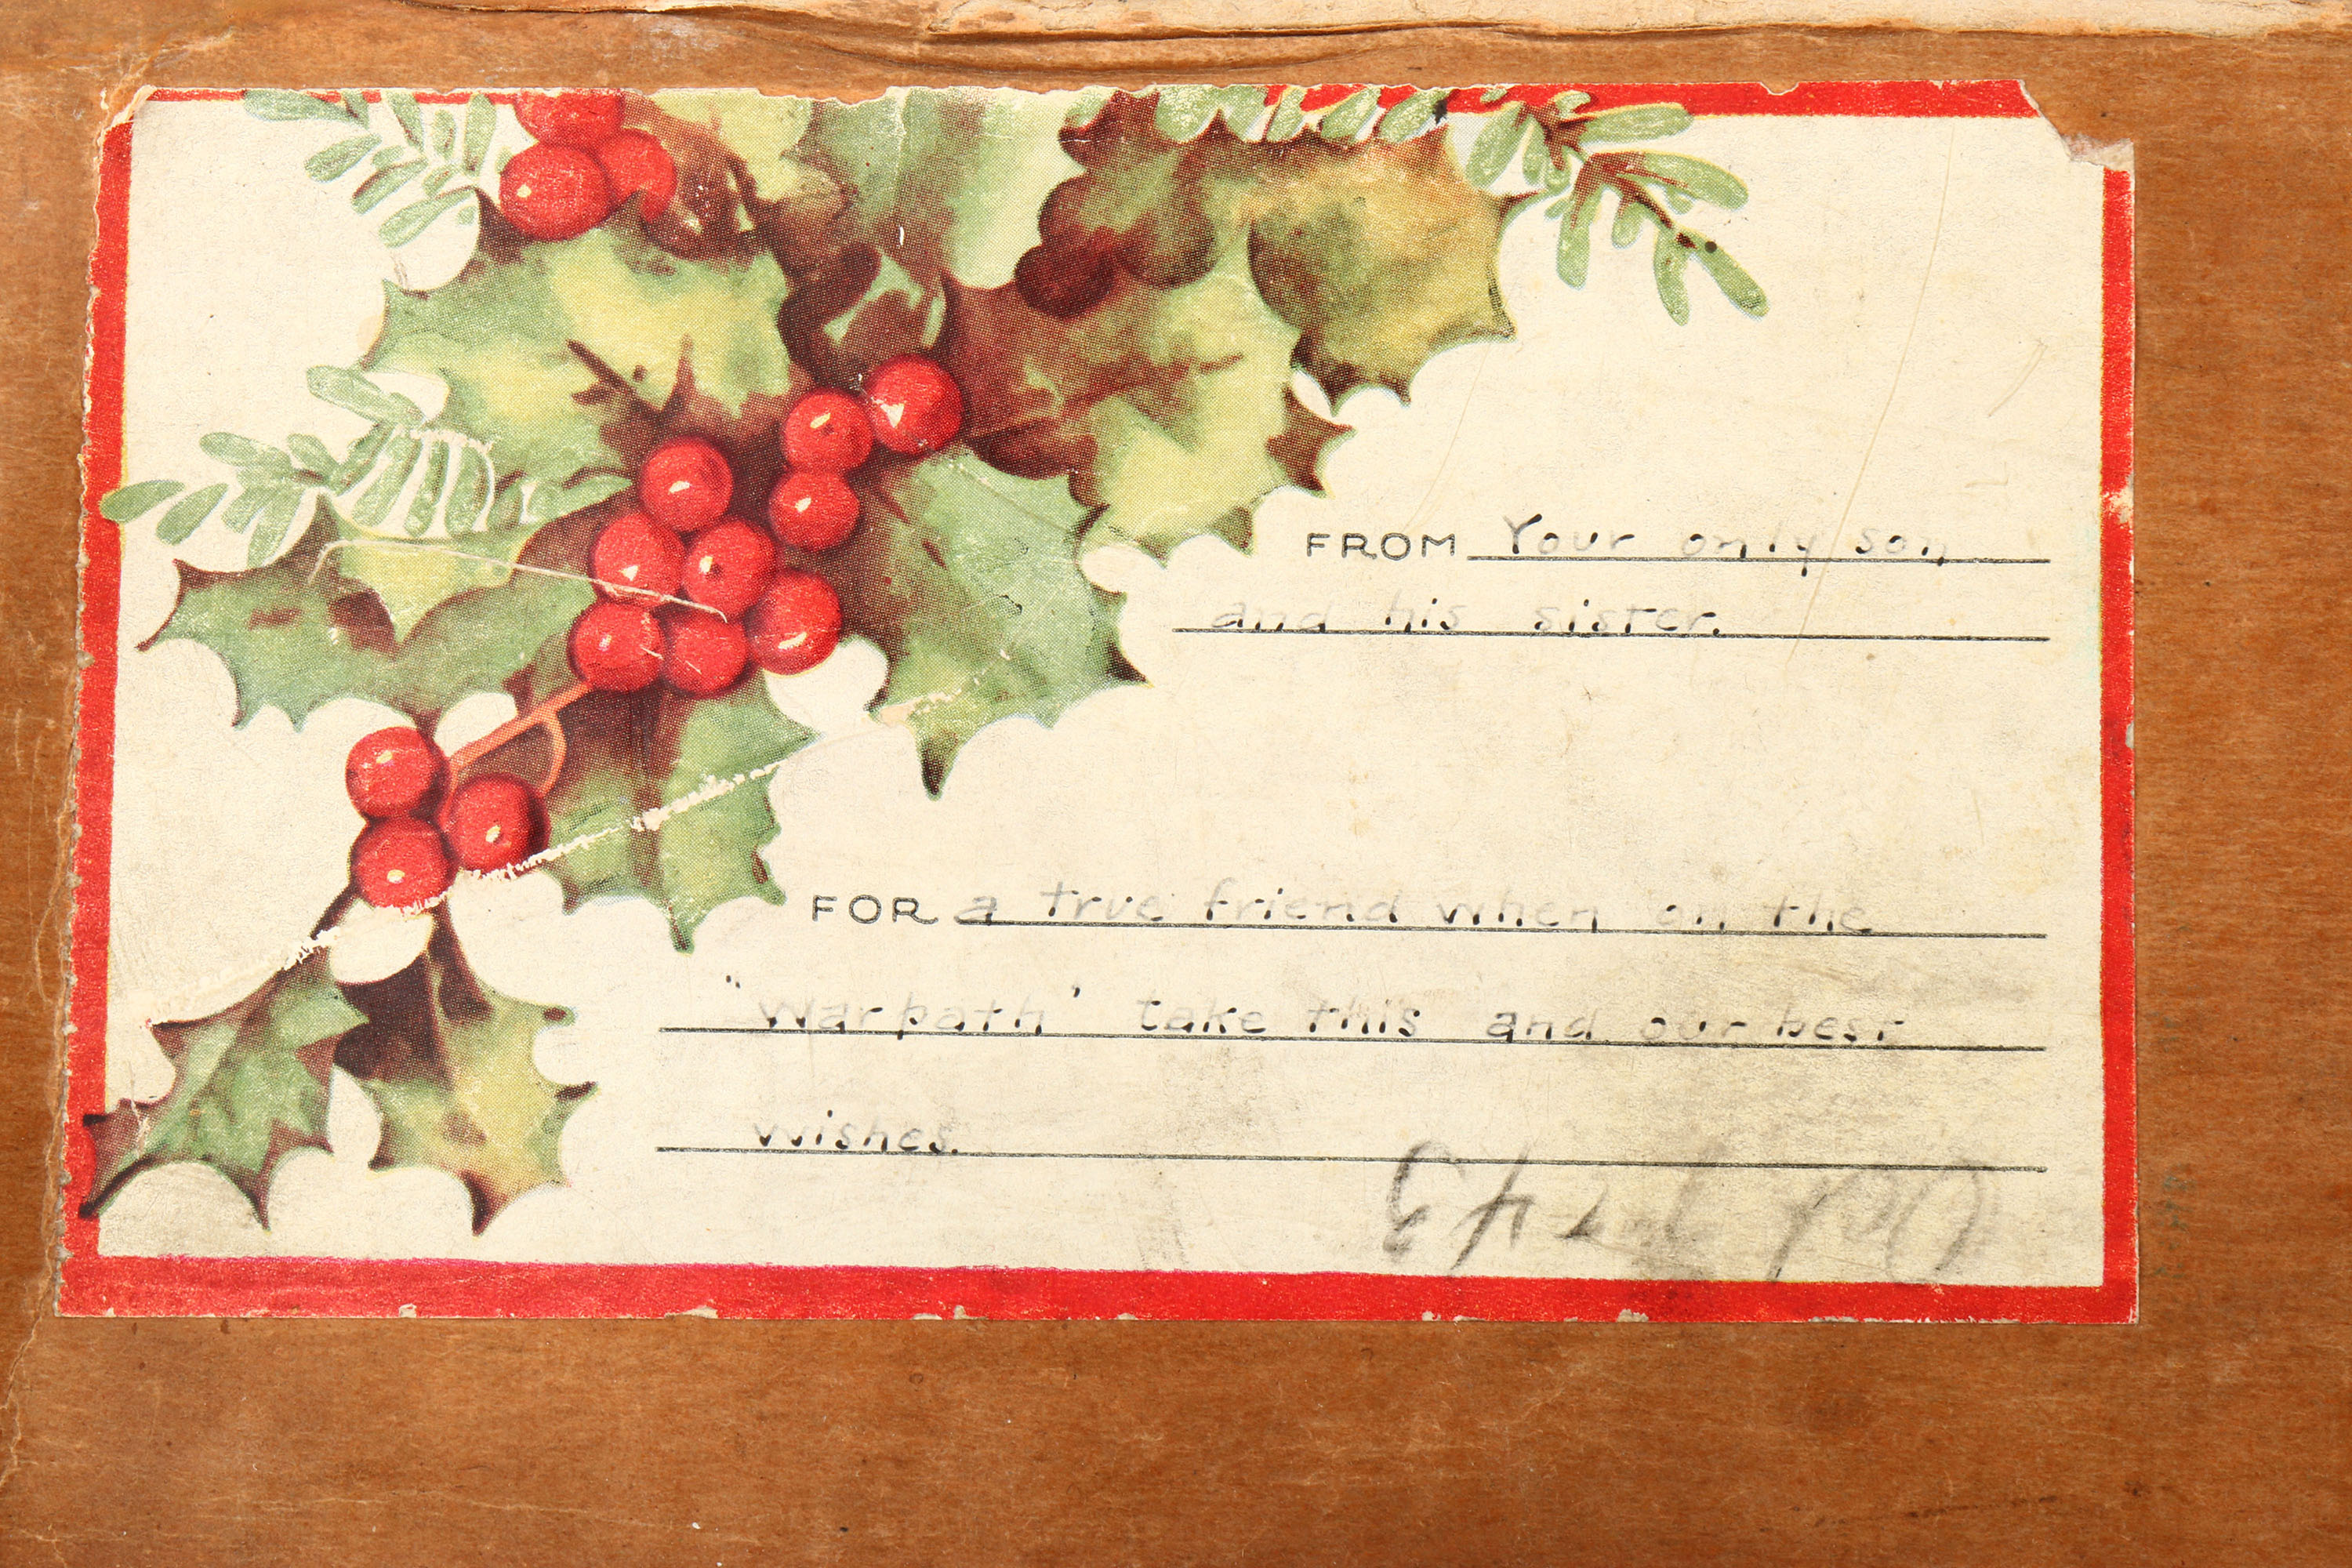 FROM Your only son
and his sister.
FOR a true friend when on the
"Warpath' take this and our best
wishes.